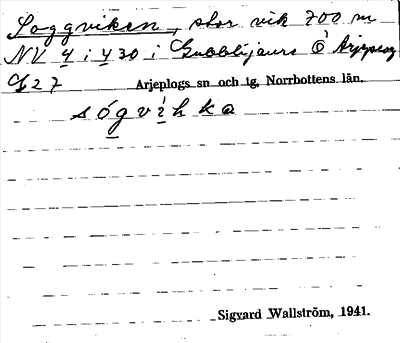 Soggviken, stor vik 700 m
NV 4 i 430 i Gubblijaurs Ö Arjeplog
G 27 Arjeplogs sn och tg, Norrbottens län.
sógvìhka
Sigvard Wallström, 1941.